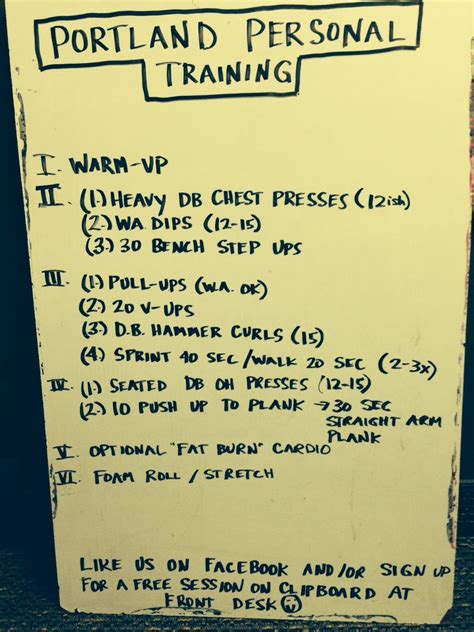 PORTLAND PERSONAL
TRAINING
I. WARM-UP
II. (1.) HEAVY DB CHEST PRESSES (12ish)
(2.) WA DIPS (12-15)
(3.) 30 BENCH STEP UPS
III. (1.) PULL-UPS (W.A. OK)
(2.) 20 V-UPS
(3.) D.B. HAMMER CURLS (15)
(4.) SPRINT 40 SEC/WALK 20 SEC (2-3x)
IV. (1.) SEATED DB OH PRESSES (12-15)
(2.) 10 PUSH UP TO PLANK → 30 SEC
STRAIGHT ARM
PLANK
V. OPTIONAL "FAT BURN" CARDIO
VI. FOAM ROLL / STRETCH
LIKE US ON FACEBOOK AND/OR SIGN UP
FOR A FREE SESSION ON CLIPBOARD AT
FRONT DESK ☺